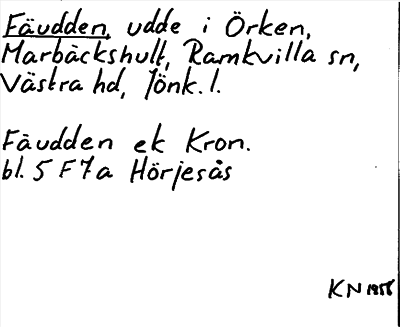 Fäudden, udde i Örken,
Marbäckshult, Ramkvilla sn,
Västra hd, Jönk. l.
Fäudden ek Kron.
bl. 5 F 7 a Hörjesås
KN